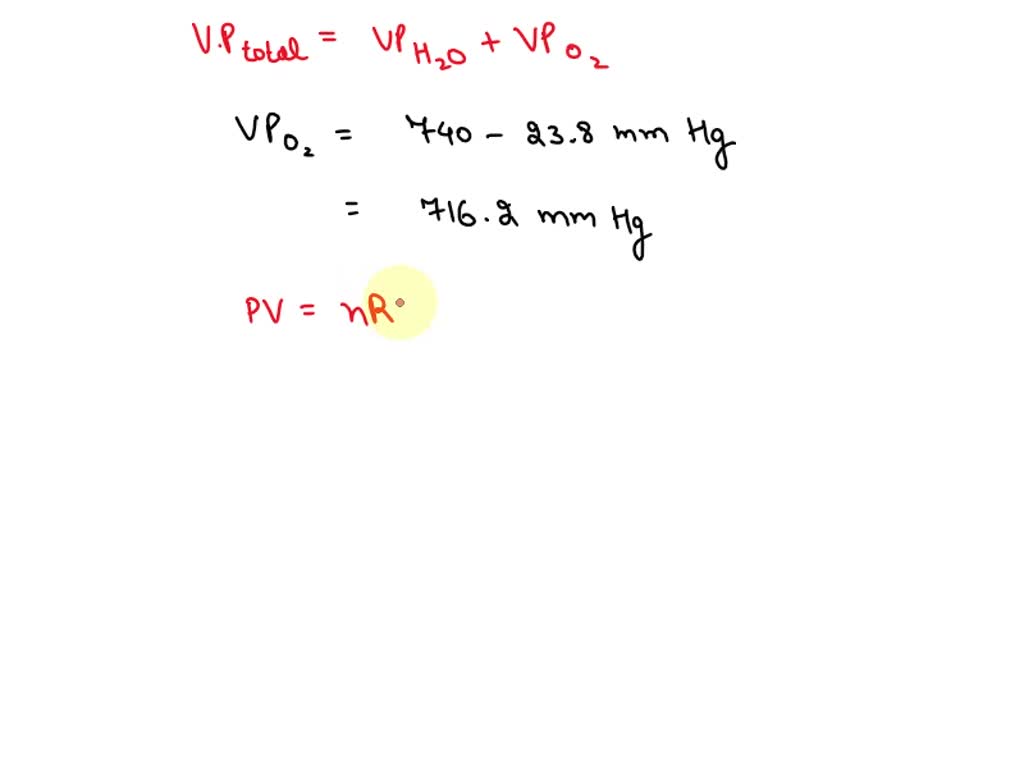 V.Ptotal = VPH₂O + VPO₂
VPO₂ = 740 - 23.8 mm Hg
= 716.2 mm Hg
PV = nR